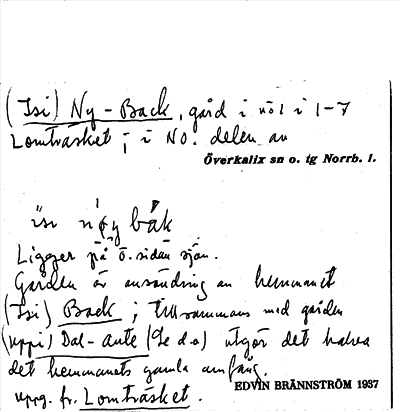 (Isi) Ny-Back, gård i nöl i 1-7
Lomträsket; i NO. delen av
Överkalix sn o. tg Norrb. l.
isi nøy båk
Ligger på ö. sidan sjön.
Gården är avsöndring av hemmanet
(Isi) Back; tillsammans med gården
(uppi) Dal-Ante (Se d.o) utgör det halva
det hemmanets gamla omfång.
EDVIN BRÄNNSTRÖM 1937
uppg. fr. Lomträsket.